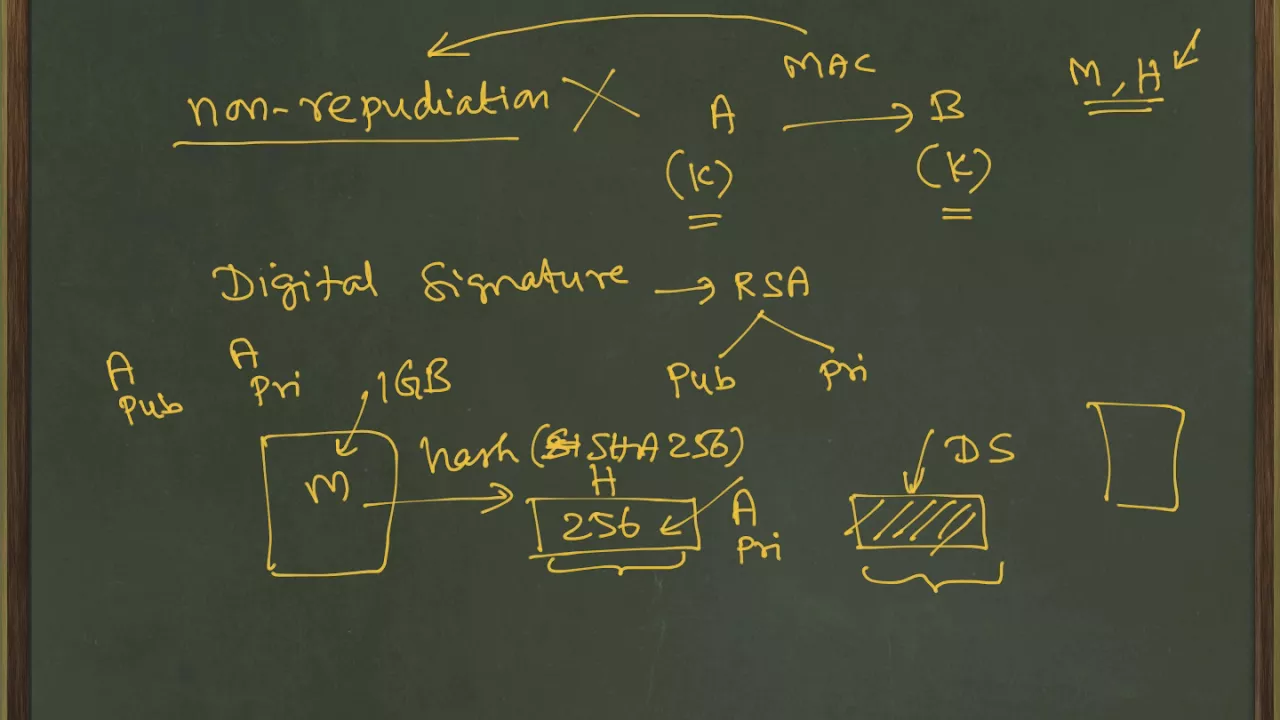 MAC
non-repudiation
A → B
M, H
(K) (K)
Digital Signature → RSA
Pub Pri
A Pub
A Pri
1GB
M
hash (SHA256)
H
256
A Pri
DS